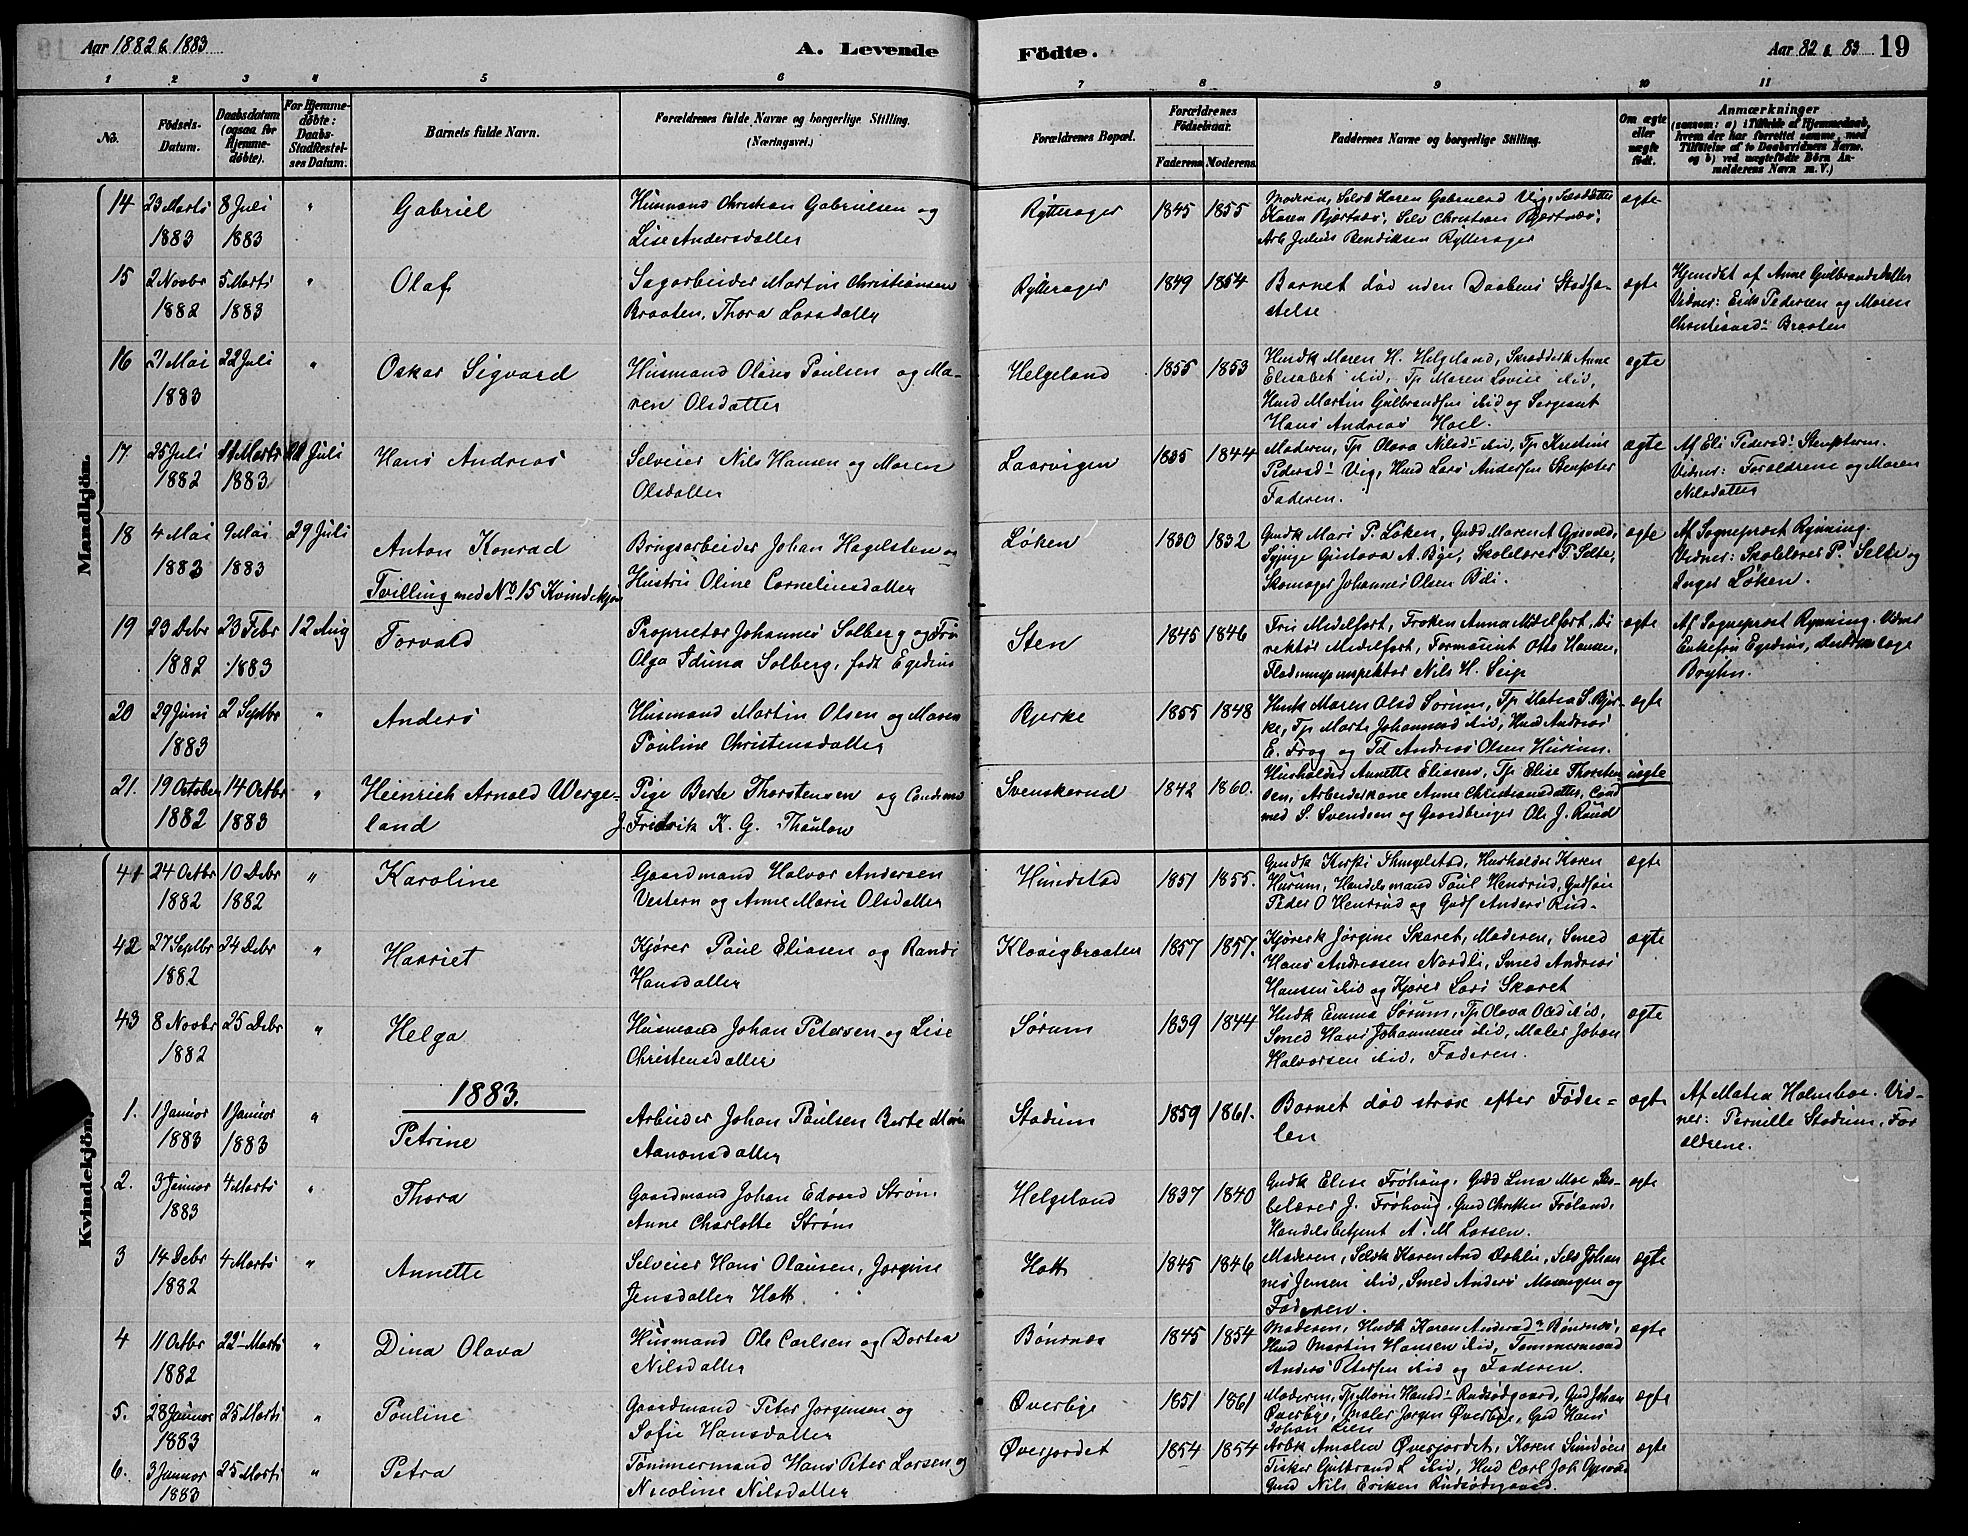 Aar 1882 & 1883
A. Levende Födte.
Aar 82 & 83 19
1 2 3 4 5 6 7 8 9 10 11
No.
Födsels-Datum.
Daabsdatum (ogsaa for Hjemmedöbte).
For Hjemmedöbte: Daabs-Stadfestelses Datum.
Barnets fulde Navn.
Forældrenes fulde Navne og borgerlige Stilling.
(Næringsvei.)
Forældrenes Bopæl.
Forældrenes Födselsaar.
Faderens. Moderens.
Faddernes Navne og borgerlige Stilling.
Om ægte eller uægte födt.
Anmærkninger
(saasom: a) i Tilfælde af Hjemmedaab,
hvem der har forrettet samme, med
Tilföielse af to Daabsvidners Navne,
og b) ved uægtefödte Börn An-
melderens Navn m. V.)
Mandkjön.
14 23 Marts 1883 8 Juli 1883 " Gabriel
Husmand Christian Gabrielsen og
Lise Andersdatter
Rytterager 1845 1855
Karen Bjertnæs, Selv Christian Bjertnæs,
Arb Julius Bendiksen Rytterager
ægte
15 2 Novbr 1882 5 Marts 1883 " Olaf
Sagarbeider Martin Christiansen
Braaten, Thora Larsdatter
Rytterager 1849 1854
Barnet død uden Daabens Stadfæ-
stelse
ægte
Hjemdøbt af Anne Gulbrandsdatter
Vidner: Eids Pedersen og Maren
Christiansd. Braaten
16 21 Mai 1883 22 Juli " Oskar Sigvard
Husmand Olaus Paulsen og Ma-
ren Olsdatter
Helgeland 1855 1853
Husdk Maren H. Helgeland, Skrædderk Anne
Elisabet ibid, Tp Maren Lovise ibid,
Husd Martin Gulbrandsen ibid og Sergeant
Hans Andreas Hoel.
ægte
17 25 Juli 1882 11 Marts 1883 22 Juli Hans Andreas
Selveier Nils Hansen og Maren
Olsdatter
Laarvigen 1835 1844
Moderen, Tp. Olava Nilsd. ibid, Tp Kristine
Pedersd. Vig, Husd Lars Andersen Stensæter
Faderen.
ægte
Af Eli Pedersd. Stensæteren.
Vidner: Forældrene og Maren
Nilsdatter
18 4 Mai 1883 9 Mai 1883 29 Juli Anton Konrad
Tvilling med No 15 Kvindekjøn
Brugsarbeider Johan Hagelsten og
Hustru Oline Corneliusdatter
Løken 1830 1832
Gmdk Mari P. Løken, Gmdd Maren
Sypige Gustava A. Bye, Skolelærer P. Selte,
Skomager Johannes Olsen Bdi.
ægte
Af Sogneprest Rynning.
Vidner: Skolelærer P. Selte og
Inger Løken.
19 23 Debr 1882 23 Febr 1883 12 Aug Torvald
Proprietær Johannes Solberg og Fru
Olga Iduna Solberg, født Egedius
Sten 1845 1846
Fru Midelfart, Frøken Anna Midelfart, Di
rektør Midelfart, Formuint Otto Hansen,
Flødningsinspektør Nils H. Seip
ægte
Af Sogneprest Rynning. Vidner
Enkefru Egedius, Distriktslæge
Boyhn.
20 29 Juni 1883 2 Septbr " Anders
Husmand Martin Olsen og Maren
Pauline Christensdatter
Bjerke 1855 1848
Husk Maren Olsd Sørum, Tp Matea S. Bjer-
ke, Tp Marte Johannesd ibid, Husd Andreas
E. Frog og Td Andreas Olsen Hurum.
ægte
21. 19 October 1882 14 Octbr 1883 " Heinrich Arnold Werge-
land
Pige Berte Thorstensen og Cand.med
J. Fredrik K. G. Thaulow
Svenskerud 1842 1860.
Husholder Annette Eliasen, Tp Elise Thorsten-
sen, Arbeiderkone Anne Christiansdatter, Cand
med S. Svendsen og Gaardbruger Ole J. Ruud
uægte
Kvindekjön.
41 24 Octbr 1882 10 Debr 1882 " Karoline
Gaardmand Halvor Andersen
Vestern og Anne Marie Olsdatter
Hundstad 1851 1855.
Gmdk Kirsti Thingelstad, Husholder Karen
Hurum, Handelsmand Paul Hensrud, Gmdsøn
Peder O Hensrud og Gmds Anders Rud-
ægte
42 27 Septbr 1882 24 Debr " Harriet
Kjører Paul Eliasen og Randi
Hansdatter
Kloovigbraaten 1857 1857.
Kjørerk Jørgine Skaret, Moderen, Smed
Hans Andreasen Nordli, Smed Andreas
Hansen ibid og Kjører Lars Skaret
ægte
43 8 Novbr 1882 25 Debr " Helga
Husmand Johan Petersen og Lise
Christensdatter
Sørum 1839 1844
Husdk Emma Sørum, Tp Olava Olsd ibid,
Smed Hans Johannesen ibid, Maler Johan
Halvorsen ibid, Faderen.
ægte
1883.
1. 1 Januar 1883 1 Januar 1883 " Petrine
Arbeider Johan Paulsen Berte Marie
Aanonsdatter
Stadum 1859 1861.
Barnet død strax efter Fødse-
len
ægte
Af Matea Holmboe. Vid-
ner: Pernille Stadum, For
ældrene.
2. 3 Januar 1883 4 Marts " Thora
Gaardmand Johan Edvard Strøm
Anne Charlotte Strøm
Helgeland 1837 1840
Gmdk Elise Frøhaug, Gmdd Lina Moe Sko-
lelærer J. Frøhaug, Gmd Christen Frøland,
Handelsbetjent A. M. Larsen.
ægte
3 14 Debr 1882 4 Marts " Annette
Selveier Hans Olausen, Jørgine
Jensdatter Hatt.
Hatt 1845 1846
Moderen, Selvk Karen And Dahlen, Selv Johan
nes Jensen ibid, Smed Anders Masengen og
Faderen.
ægte
4 11 Octbr 1882 22 Marts " Dina Olava
Husmand Ole Carlsen og Dortea
Nilsdatter
Bønsnæs 1845 1854
Moderen, Husdk Karen Andersd. Bønsnæs,
Husd Martin Hansen ibid, Tømmermand
Anders Petersen ibid og Faderen.
ægte
5. 28 Januar 1883 23 Marts " Pauline
Gaardmand Peter Jørgensen og
Sofie Hansdatter
Øverbye 1851 1861
Moderen, Tp. Marie Hansd. Rudsødegaard, Gmd Johan
Øverbye, Maler Jørgen Øverbye, Gmd Hans
Johan Lien
ægte
6. 3 Januar 1883 25 Marts " Petra
Tømmermand Hans Peter Larsen og
Nicoline Nilsdatter
Øverjordet 1854 1854
Arbk Amalia Øverjordet, Karen Sundøen
Fisker Gulbrand L ibid, Husd Carl Joh
Gmd Nils Eriksen Rudsødegaard.
ægte